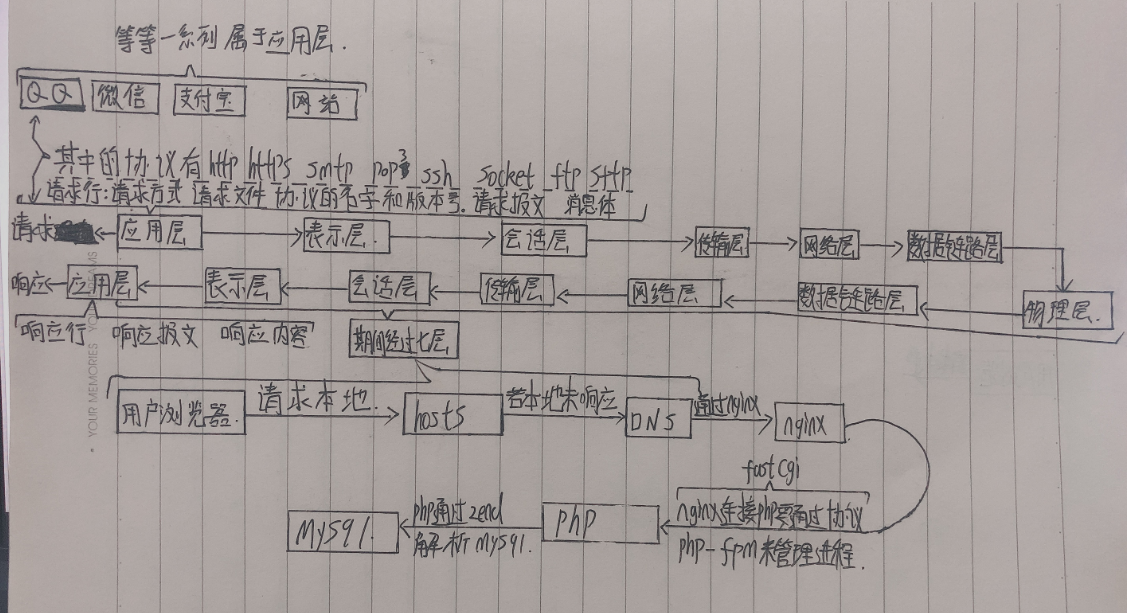 等等一系列属于应用层.
QQ 微信 支付宝 网站
其中的协议有http https smtp pop3 ssh socket ftp sftp
请求行:请求方式 请求文件 协议的名字和版本号. 请求报文 消息体
请求 应用层 表示层. 会话层 传输层 网络层 数据链路层
响应 应用层 表示层 会话层 传输层 网络层 数据链路层 物理层.
响应行 响应报文 响应内容 期间经过七层
用户浏览器 请求本地. hosts 若本地未响应 DNS 通过nginx nginx
fastcgi
nginx连接php要通过协议
php-fpm来管理进程.
php
php通过zend
解析mysql.
mysql.
YOUR MEMORIES YOUR DREAMS